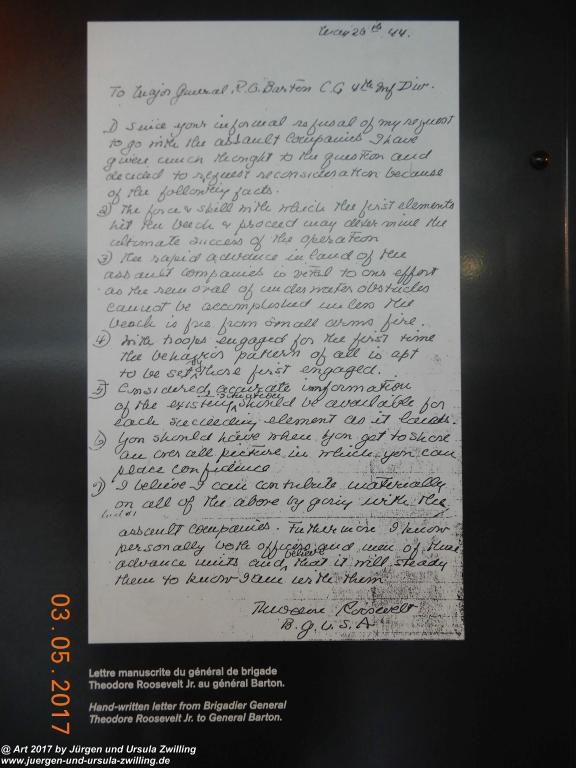 May 26th 44.
To Major General. R.O. Barton C.G 4th Inf Div.
1) Since your informal refusal of my request
to go with the assault companies I have
given much thought to the question and
decided to request reconsideration because
of the following facts.
2) The force & skill with which the first elements
hit the beach & proceed may determine the
ultimate success of the operation
3) The rapid advance in land of the
assault companies is vital to our effort
as the removal of underwater obstacles
cannot be accomplished unless the
beach is free from small arms fire.
4) With troops engaged for the first time
the behavior pattern of all is apt
to be set by those first engaged.
5) Considered, accurate information
of the existing situation should be available for
each succeeding element as it lands.
6) You should have when you get to shore
an over all picture in which you can
place confidence
7) I believe I can contribute materially
on all of the above by going with the
assault companies. Futhermore I know
personally both officers and men of these
advance units and believe that it will steady
them to know I am with them
Theodore Roosevelt
B.G. U.S.A
Lettre manuscrite du général de brigade
Theodore Roosevelt Jr. au général Barton.
Hand-written letter from Brigadier General
Theodore Roosevelt Jr. to General Barton.
03.05.2017
@ Art 2017 by Jürgen und Ursula Zwilling
www.juergen-und-ursula-zwilling.de